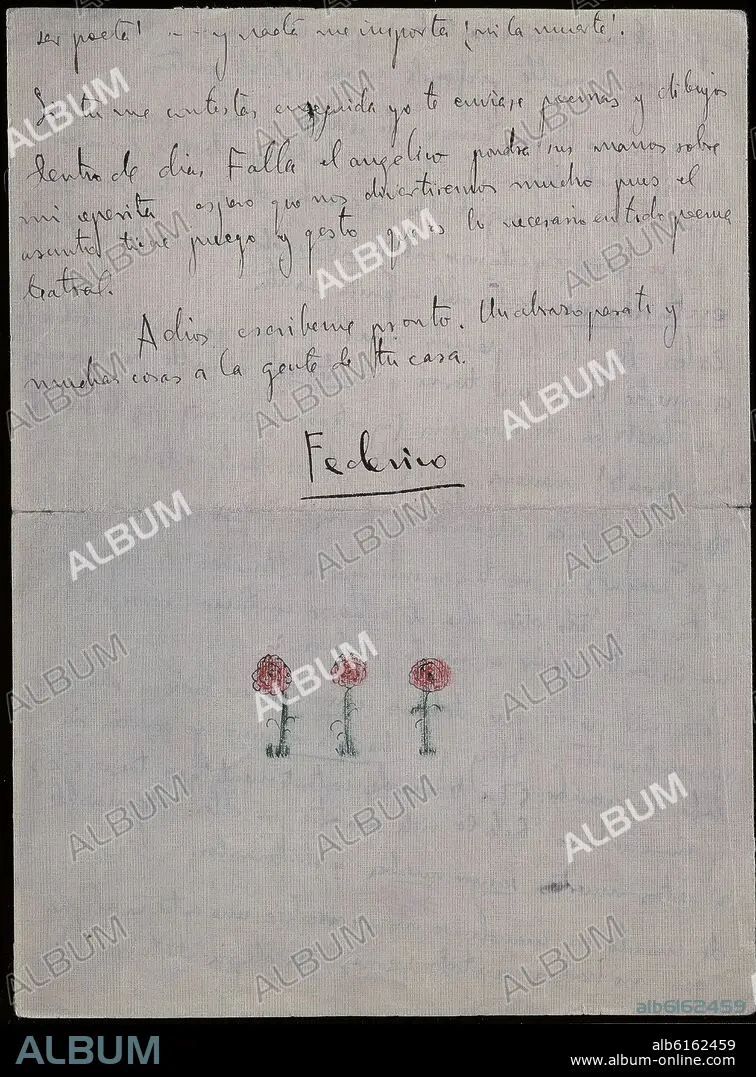 ser poeta! ... y nada me importa ¡ni la muerte!.
Si tu me contestas enseguida yo te enviaré poemas y dibujos
dentro de dias Falla el angelico pondrá sus manos sobre
mi operita espero que nos divertiremos mucho pues el
asunto tiene juego y gesto que es lo necesario en todo poema
teatral.
Adios escribeme pronto. Un abrazo para ti y
muchas cosas a la gente de tu casa.
Federico
ALBUM
alb6162459
ALBUM
alb6162459
www.album-online.com